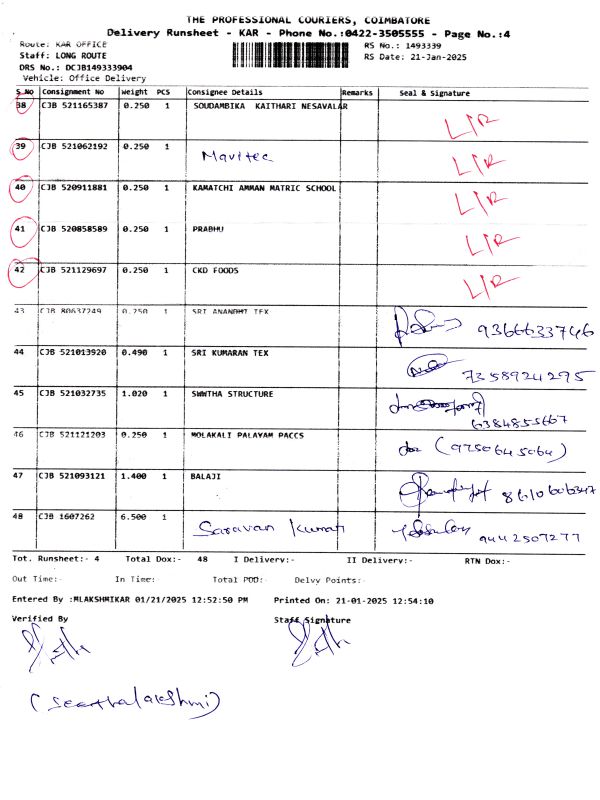 THE PROFESSIONAL COURIERS, COIMBATORE
Delivery Runsheet - KAR - Phone No.:0422-3505555 - Page No.:4
Route: KAR OFFICE RS No.: 1493339
Staff: LONG ROUTE RS Date: 21-Jan-2025
DRS No.: DCJB149333904
Vehicle: Office Delivery
S No Consignment No Weight PCS Consignee Details Remarks Seal & Signature
38 CJB 521165387 0.250 1 SOUDAMBIKA KAITHARI NESAVALAR L/R
39 CJB 521062192 0.250 1 Mavitec L/R
40 CJB 520911881 0.250 1 KAMATCHI AMMAN MATRIC SCHOOL L/R
41 CJB 520858589 0.250 1 PRABHU L/R
42 CJB 521129697 0.250 1 CKD FOODS L/R
43 CJB 80637249 0.250 1 SRI ANANDHI TEX 9366633746
44 CJB 521013920 0.490 1 SRI KUMARAN TEX 7358924295
45 CJB 521032735 1.020 1 SWWTHA STRUCTURE 6384855667
46 CJB 521121203 0.250 1 MOLAKALI PALAYAM PACCS (9750645064)
47 CJB 521093121 1.400 1 BALAJI 8610606347
48 CJB 1607262 6.500 1 Saravan Kumar 9442507277
Tot. Runsheet:- 4 Total Dox:- 48 I Delivery:- II Delivery:- RTN Dox:-
Out Time:- In Time:- Total POD:- Delvy Points:-
Entered By :MLAKSHMIKAR 01/21/2025 12:52:50 PM Printed On: 21-01-2025 12:54:10
Verified By Staff Signature
(Seethalakshmi)